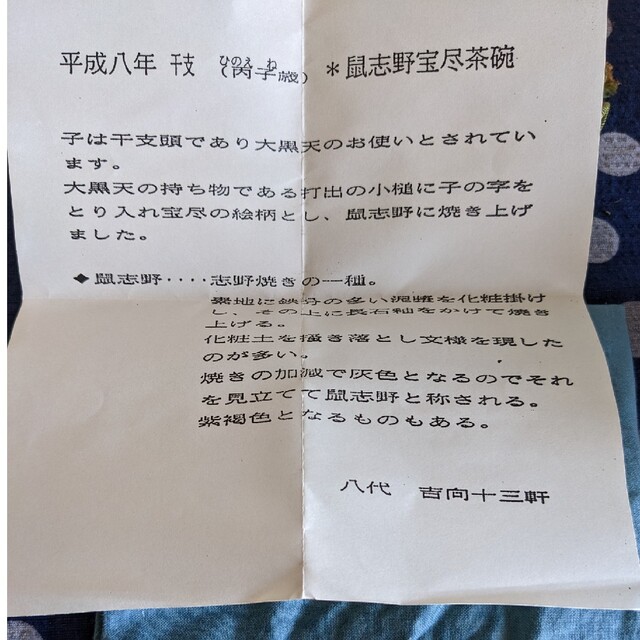 平成八年 干支 (丙子歳) *鼠志野宝尽茶碗
ひのえ ね
子は干支頭であり大黒天のお使いとされてい
ます。
大黒天の持ち物である打出の小槌に子の字を
とり入れ宝尽の絵柄とし、鼠志野に焼き上げ
ました。
◆鼠志野‥‥志野焼きの一種。
素地に鉄分の多い泥漿を化粧掛け
し、その上に長石釉をかけて焼き
上げる。
化粧土を掻き落とし文様を現した
のが多い。
焼きの加減で灰色となるのでそれ
を見立てて鼠志野と称される。
紫褐色となるものもある。
八代 吉向十三軒